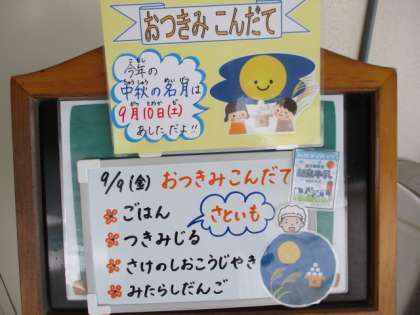 おつきみ こんだて
今年の
中秋の名月は
9月10日(土)
あしただよ!!
9/9(金) おつきみこんだて
ごはん
つきみじる
さといも
さけのしおこうじやき
みたらしだんご